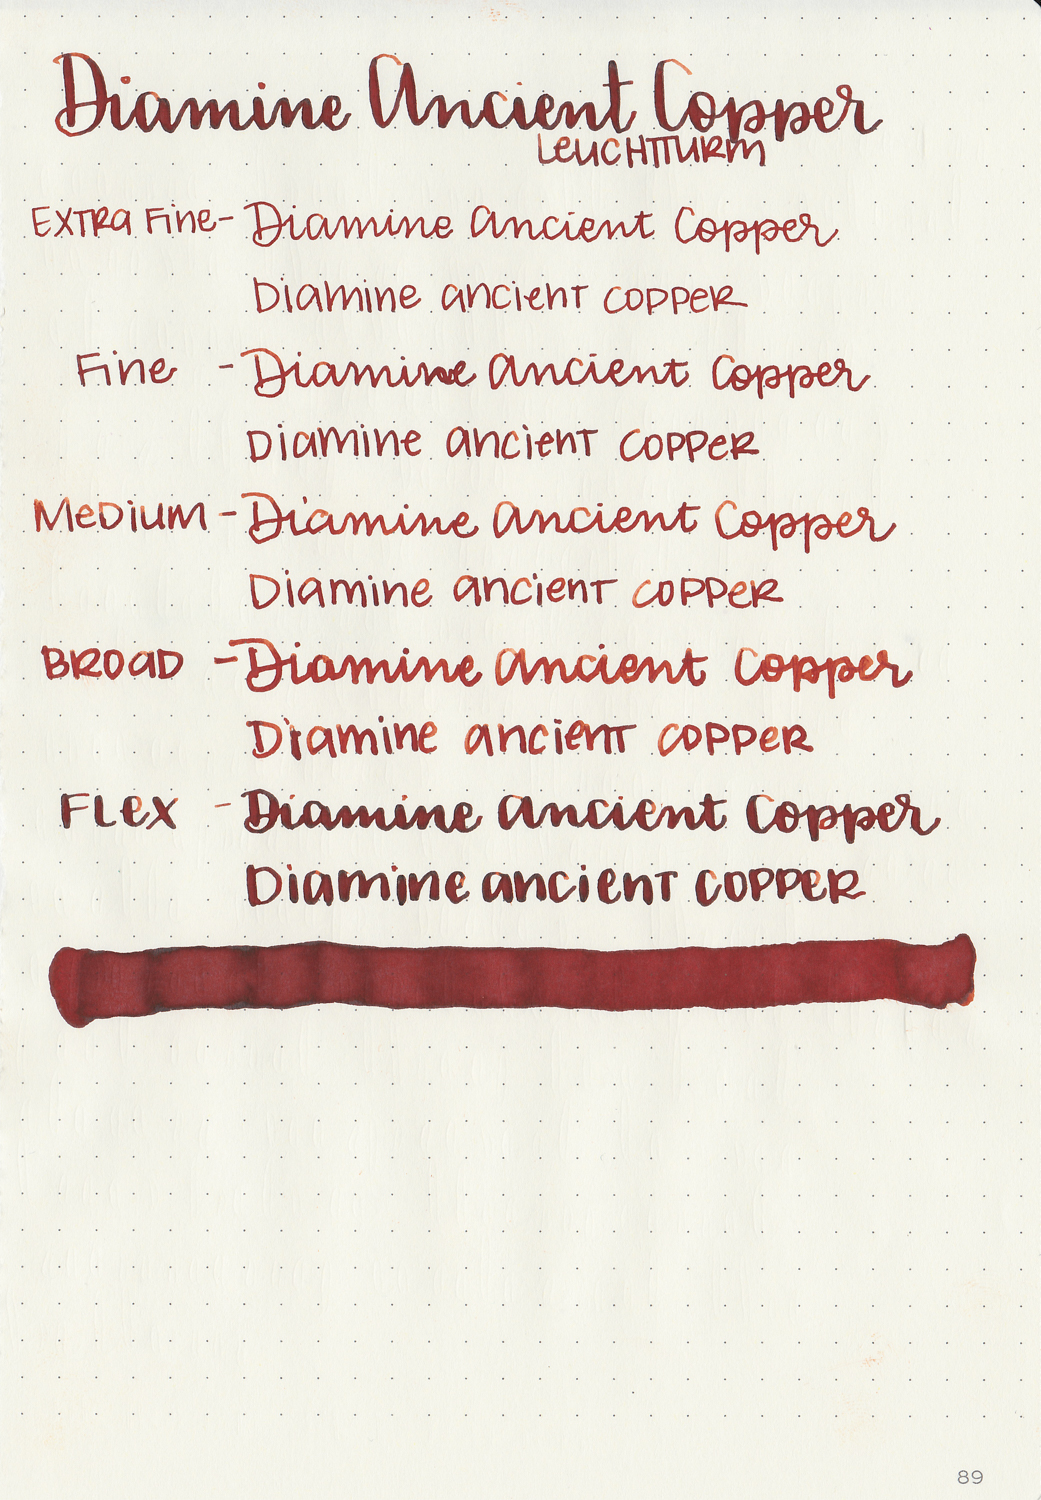 Diamine Ancient Copper
Leuchtturm
Extra Fine - Diamine Ancient Copper
Diamine Ancient Copper
Fine - Diamine Ancient Copper
Diamine Ancient Copper
Medium - Diamine Ancient Copper
Diamine Ancient Copper
Broad - Diamine Ancient Copper
Diamine Ancient Copper
Flex - Diamine Ancient Copper
Diamine Ancient Copper
89